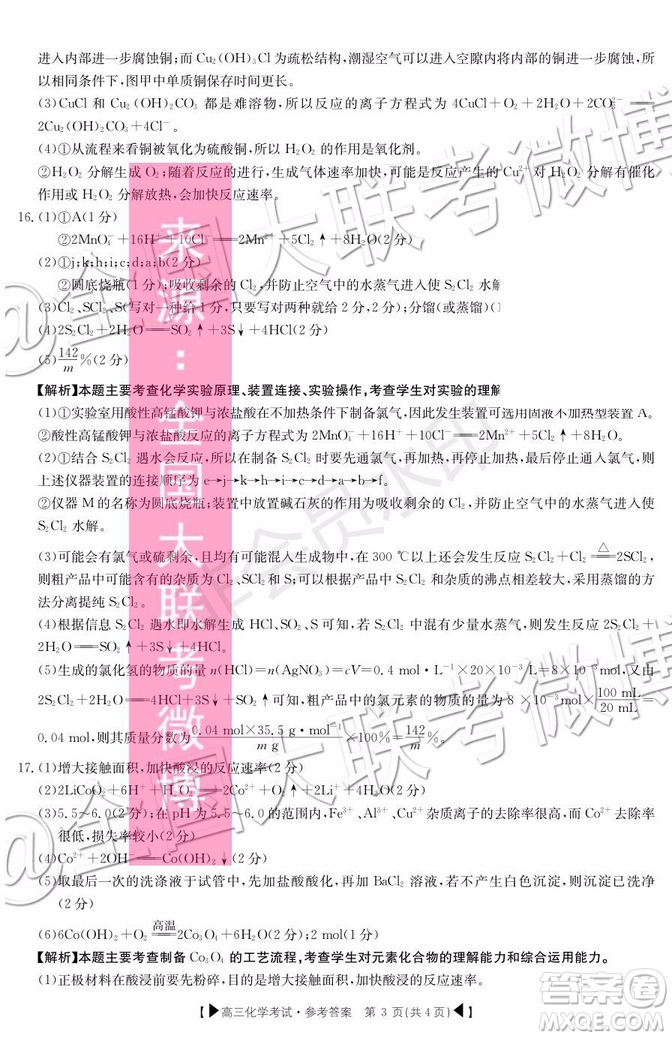 进入内部进一步腐蚀铜；而 Cu₂(OH)₃Cl 为疏松结构，潮湿空气可以进入空隙内将内部的铜进一步腐蚀，所
以相同条件下，图甲中单质铜保存时间更长。
(3)CuCl 和 Cu₂(OH)₂CO₃ 都是难溶物，所以反应的离子方程式为 4CuCl＋O₂＋2H₂O＋2CO₃²⁻══
2Cu₂(OH)₂CO₃＋4Cl⁻。
(4)①从流程来看铜被氧化为硫酸铜，所以 H₂O₂ 的作用是氧化剂。
②H₂O₂ 分解生成 O₂；随着反应的进行，生成气体速率加快，可能是反应产生的 Cu²⁺ 对 H₂O₂ 分解有催化
作用或 H₂O₂ 分解放热，会加快反应速率。
16. (1)①A(1 分)
②2MnO₄⁻＋16H⁺＋10Cl⁻══2Mn²⁺＋5Cl₂↑＋8H₂O(2 分)
(2)①j;k;h;i;c;d;a;b(2 分)
②圆底烧瓶(1 分)；吸收剩余的 Cl₂，并防止空气中的水蒸气进入使 S₂Cl₂ 水解
(3)Cl₂、SCl₂、S(写对一种给 1 分，只要写对两种就给 2 分，2 分)；分馏(或蒸馏)(1
(4)2S₂Cl₂＋2H₂O══SO₂↑＋3S↓＋4HCl(2 分)
(5)142/m%(2 分)
【解析】本题主要考查化学实验原理、装置连接、实验操作，考查学生对实验的理解
(1)①实验室用酸性高锰酸钾与浓盐酸在不加热条件下制备氯气，因此发生装置可选用固液不加热型装置 A。
②酸性高锰酸钾与浓盐酸反应的离子方程式为 2MnO₄⁻＋16H⁺＋10Cl⁻══2Mn²⁺＋5Cl₂↑＋8H₂O。
(2)①结合 S₂Cl₂ 遇水会反应，所以在制备 S₂Cl₂ 时要先通氯气，再加热，再停止加热，最后停止通入氯气，则
上述仪器装置的连接顺序为 e→j→k→h→i→c→d→a→b→f。
②仪器 M 的名称为圆底烧瓶；装置中放置碱石灰的作用为吸收剩余的 Cl₂，并防止空气中的水蒸气进入使
S₂Cl₂ 水解。
(3)可能会有氯气或硫剩余，且均有可能混入生成物中，在 300 ℃以上会发生反应 S₂Cl₂＋Cl₂══△2SCl₂，
则粗产品中可能含有的杂质为 Cl₂、SCl₂ 和 S；可以根据产品与杂质的沸点相差较大，采用蒸馏的方
法分离提纯 S₂Cl₂。
(4)根据信息 S₂Cl₂ 遇水即水解生成 HCl、SO₂、S 可知，若 S₂Cl₂ 中混有水，则会发生反应 2S₂Cl₂＋
2H₂O══SO₂↑＋3S↓＋4HCl。
(5)生成的氯化氢的物质的量 n(HCl)＝n(AgNO₃)＝cV＝0.4 mol·L⁻¹×20×10⁻³ L＝8×10⁻³ mol，又由
2S₂Cl₂＋2H₂O══4HCl＋3S↓＋SO₂↑可知，粗产品中的氯元素的物质的量为 8×10⁻³ mol×100 mL/20 mL＝
0.04 mol，则其质量分数为 0.04 mol×35.5 g·mol⁻¹/m g×100%＝142/m%。
17. (1)增大接触面积，加快酸浸的反应速率(2 分)
(2)2LiCoO₂＋6H⁺＋H₂O₂══2Co²⁺＋O₂↑＋2Li⁺＋4H₂O(2 分)
(3)5.5～6.0(2 分)；在 pH 为 5.5～6.0 的范围内，Fe³⁺、Al³⁺、Cu²⁺ 杂质离子的去除率很高，而 Co 去除率
很低，损失率较小(2 分)
(4)Co²⁺＋2OH⁻══Co(OH)₂↓(2 分)
(5)取最后一次的洗涤液于试管中，先加盐酸酸化，再加 BaCl₂ 溶液，若不产生白色沉淀，则沉淀已洗净
(2 分)
(6)6Co(OH)₂＋O₂══高温2Co₃O₄＋6H₂O(2 分)；2 mol(1 分)
【解析】本题主要考查制备 Co₃O₄ 的工艺流程，考查学生对元素化合物的理解能力和综合运用能力。
(1)正极材料在酸浸前要先粉碎，目的是增大接触面积，加快酸浸的反应速率。
【▶高三化学考试·参考答案 第 3 页(共 4 页)◀】
来源：全国大联考微博
@全国大联考微博
非会员水印
@全国大联考微博
答案圈
MXQE.COM